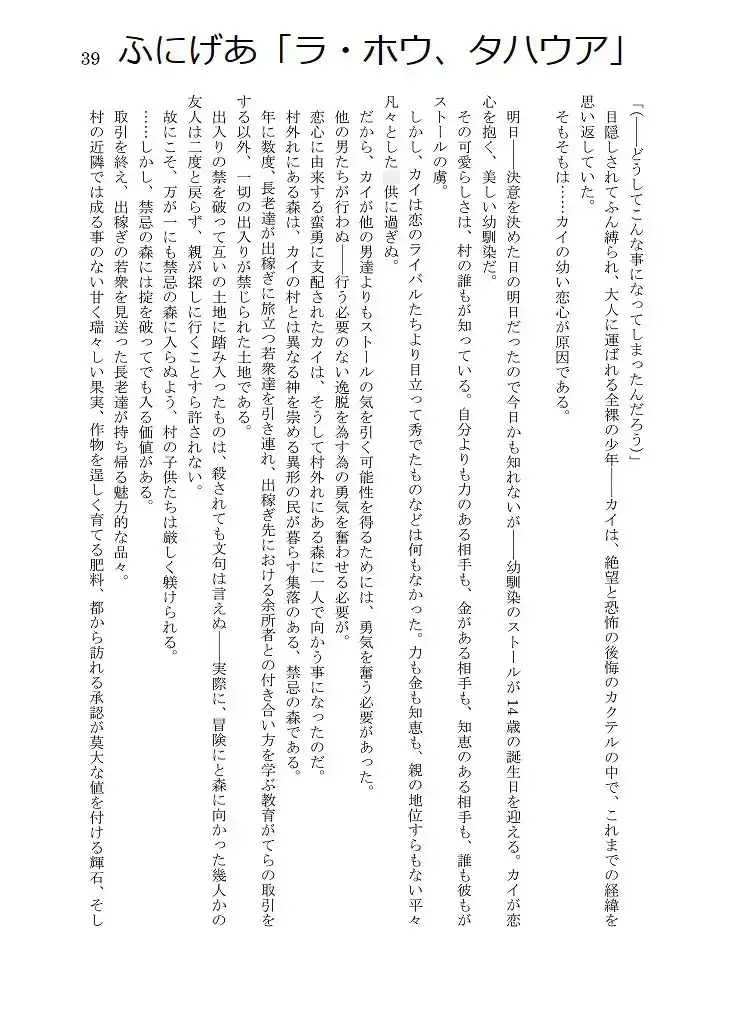 39
ふにげあ「ラ・ホウ、タハウア」
「（――どうしてこんな事になってしまったんだろう）」
目隠しされてふん縛られ、大人に運ばれる全裸の少年――カイは、絶望と恐怖の後悔のカクテルの中で、これまでの経緯を
思い返していた。
そもそもは……カイの幼い恋心が原因である。
明日――決意を決めた日の明日だったので今日かも知れないが――幼馴染のストールが14歳の誕生日を迎える。カイが恋
心を抱く、美しい幼馴染だ。
その可愛らしさは、村の誰もが知っている。自分よりも力のある相手も、金がある相手も、知恵のある相手も、誰も彼もが
ストールの虜。
しかし、カイは恋のライバルたちより目立って秀でたものなどは何もなかった。力も金も知恵も、親の地位すらもない平々
凡々とした 供に過ぎぬ。
だから、カイが他の男達よりもストールの気を引く可能性を得るためには、勇気を奮う必要があった。
他の男たちが行わぬ――行う必要のない逸脱を為す為の勇気を奮わせる必要が。
恋心に由来する蛮勇に支配されたカイは、そうして村外れにある森に一人で向かう事になったのだ。
村外れにある森は、カイの村とは異なる神を崇める異形の民が暮らす集落のある、禁忌の森である。
年に数度、長老達が出稼ぎに旅立つ若衆達を引き連れ、出稼ぎ先における余所者との付き合い方を学ぶ教育がてらの取引を
する以外、一切の出入りが禁じられた土地である。
出入りの禁を破って互いの土地に踏み入ったものは、殺されても文句は言えぬ――実際に、冒険にと森に向かった幾人かの
友人は二度と戻らず、親が探しに行くことすら許されない。
故にこそ、万が一にも禁忌の森に入らぬよう、村の子供たちは厳しく躾けられる。
……しかし、禁忌の森には掟を破ってでも入る価値がある。
取引を終え、出稼ぎの若衆を見送った長老達が持ち帰る魅力的な品々。
村の近隣では成る事のない甘く瑞々しい果実、作物を逞しく育てる肥料、都から訪れる承認が莫大な値を付ける輝石、そし